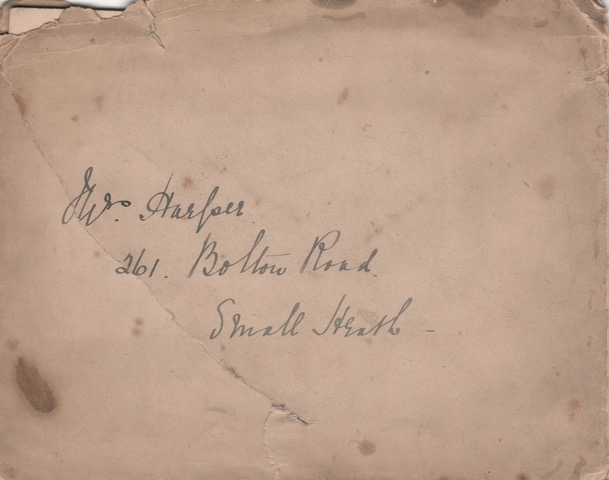 Mrs. Harper.
261. Bolton Road.
Small Heath